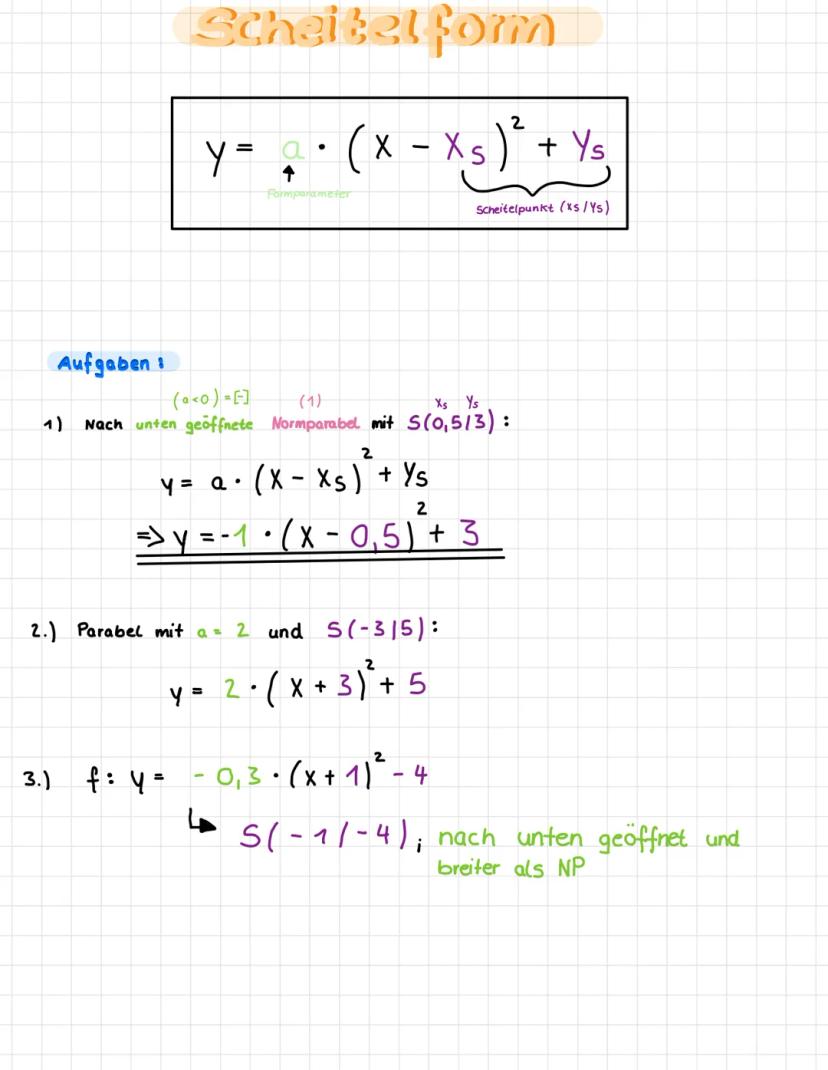 Scheitelform
y = a · (x - xs)² + ys
Formparameter
Scheitelpunkt (xs/ys)
Aufgaben:
(a<0) = [-] (1) xs ys
1) Nach unten geöffnete Normparabel mit S(0,5/3):
y = a · (x - xs)² + ys
=> y = -1 · (x - 0,5)² + 3
2.) Parabel mit a = 2 und S(-3|5):
y = 2 · (x + 3)² + 5
3.) f: y = -0,3 · (x + 1)² - 4
↳ S(-1/-4); nach unten geöffnet und
breiter als NP